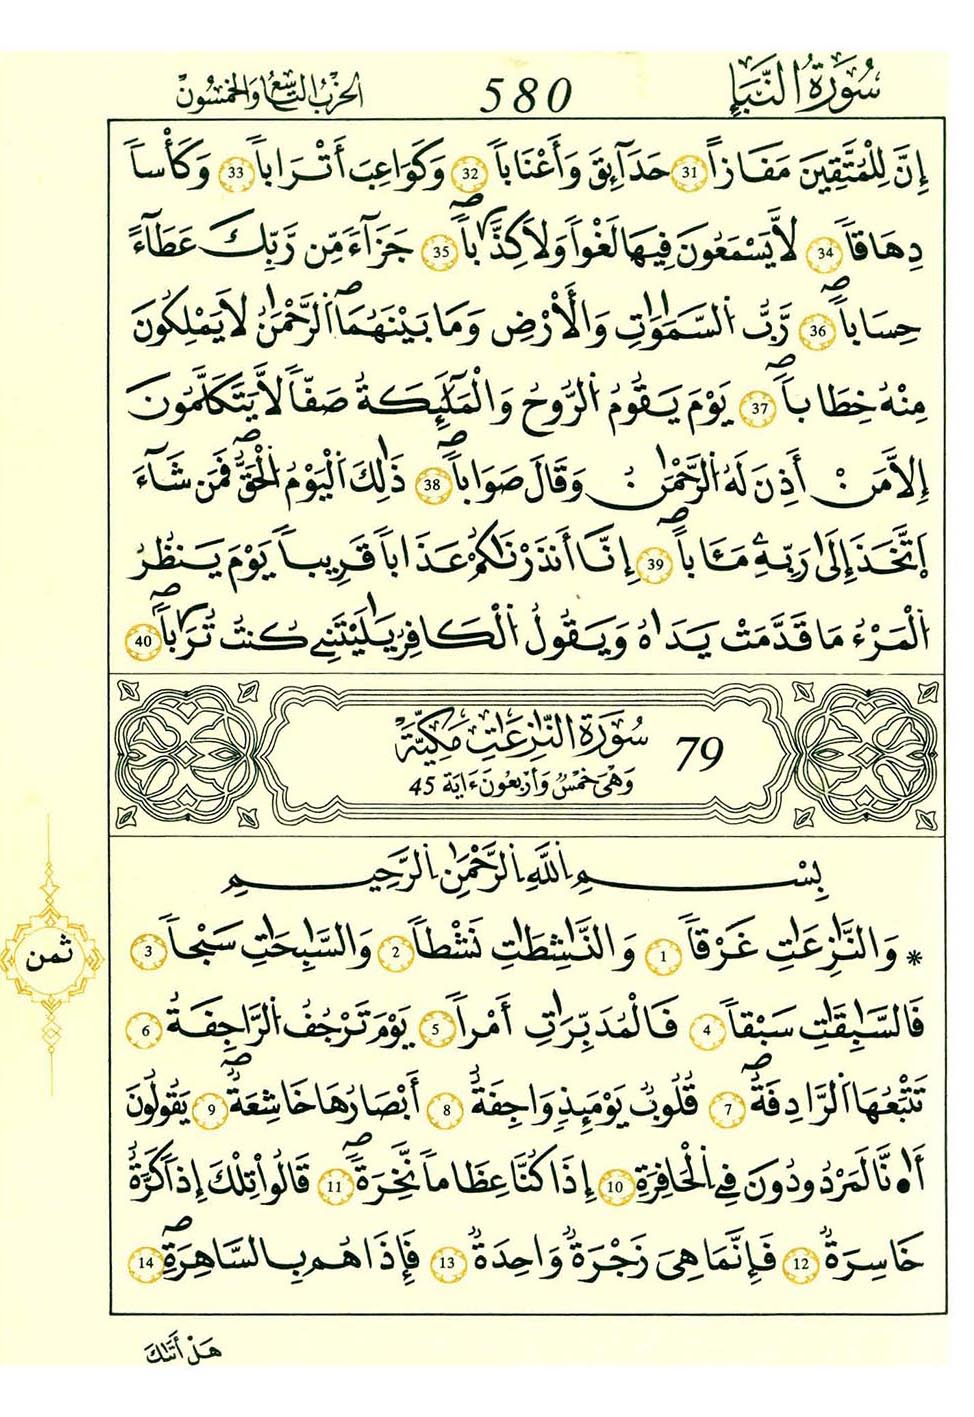 سُورَةُ النَّبَإِ 580 الحِزْبُ التَّاسِعُ وَالخَمْسُون
إِنَّ لِلْمُتَّقِينَ مَفَازاً 31 حَدَآئِقَ وَأَعْنَاباً 32 وَكَوَاعِبَ أَتْرَاباً 33 وَكَأْساً
دِهَاقاً 34 لاَّ يَسْمَعُونَ فِيهَا لَغْواً وَلاَ كِذَّٰباًۖ 35 جَزَآءً مِّن رَّبِّكَ عَطَآءً
حِسَاباًۖ 36 رَّبُّ اُ۬لسَّمَٰوَٰتِ وَالْأَرْضِ وَمَا بَيْنَهُمَاۖ اَ۬لرَّحْمَٰنُ لَا يَمْلِكُونَ
مِنْهُ خِطَاباًۖ 37 يَوْمَ يَقُومُ اُ۬لرُّوحُ وَالْمَلَٰٓئِكَةُ صَفّاً لاَّ يَتَكَلَّمُونَ
إِلاَّ مَنْ أَذِنَ لَهُ اُ۬لرَّحْمَٰنُ وَقَالَ صَوَاباًۖ 38 ذَٰلِكَ اَ۬لْيَوْمُ اُ۬لْحَقُّۖ فَمَن شَآءَ
اَ۪تَّخَذَ إِلَىٰ رَبِّهِۦ مَـَٔاباًۖ 39 اِنَّا أَنذَرْنَٰكُمْ عَذَاباً قَرِيباً يَوْمَ يَنظُرُ
اُ۬لْمَرْءُ مَا قَدَّمَتْ يَدَاهُ وَيَقُولُ اُ۬لْكَافِرُ يَٰلَيْتَنِے كُنتُ تُرَٰباًۖ 40
سُورَةُ النَّٰزِعَٰتِ مَكِّيَّةٌ 79
وَهْيَ خَمْسٌ وَأَرْبَعُونَ ءَايَة 45
بِسْمِ اِ۬للَّهِ اِ۬لرَّحْمَٰنِ اِ۬لرَّحِيمِ
* وَالنَّٰزِعَٰتِ غَرْقاً 1 وَالنَّٰشِطَٰتِ نَشْطاً 2 وَالسَّٰبِحَٰتِ سَبْحاً 3
ثمن
فَالسَّٰبِقَٰتِ سَبْقاً 4 فَالْمُدَبِّرَٰتِ أَمْراً 5 يَوْمَ تَرْجُفُ اُ۬لرَّاجِفَةُ 6
تَتْبَعُهَا اَ۬لرَّادِفَةُۖ 7 قُلُوبٌ يَوْمَئِذٍ وَاجِفَةٌ 8 أَبْصَارُهَا خَاشِعَةٌۖ 9 يَقُولُونَ
أَ.نَّا لَمَرْدُودُونَ فِے اِ۬لْحَافِرَةِ 10 إِذَا كُنَّا عِظَاماً نَّخِرَةًۖ 11 قَالُواْ تِلْكَ إِذاً كَرَّةٌ
خَاسِرَةٌۖ 12 فَإِنَّمَا هِيَ زَجْرَةٌ وَاحِدَةٌ 13 فَإِذَا هُم بِالسَّاهِرَةِۖ 14
هَلْ أَتَىٰكَ